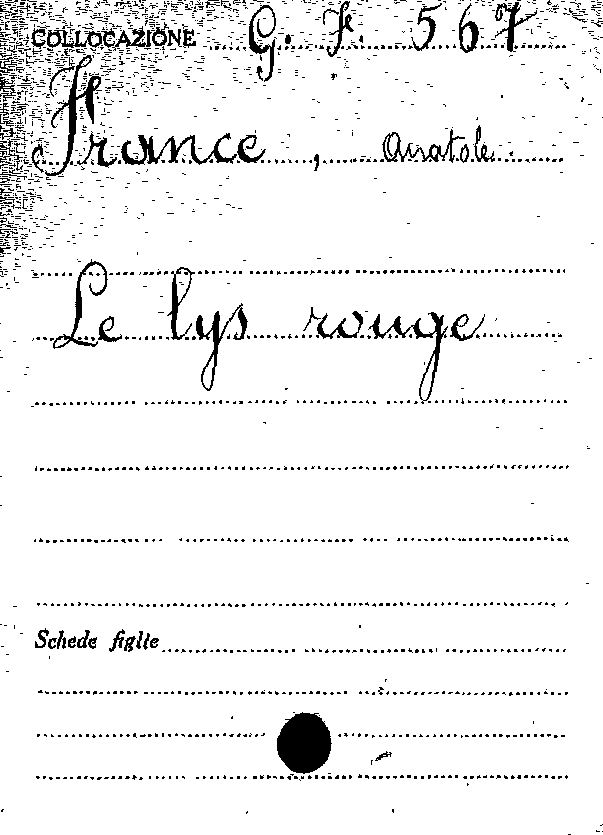 COLLOCAZIONE G. F. 567
France, Anatole.
Le lys rouge
Schede figlie